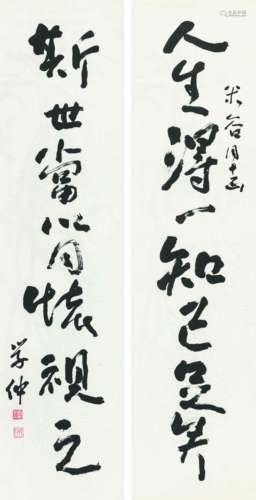 人生得一知己足矣
米谷同志
斯世当以同怀视之
学仲